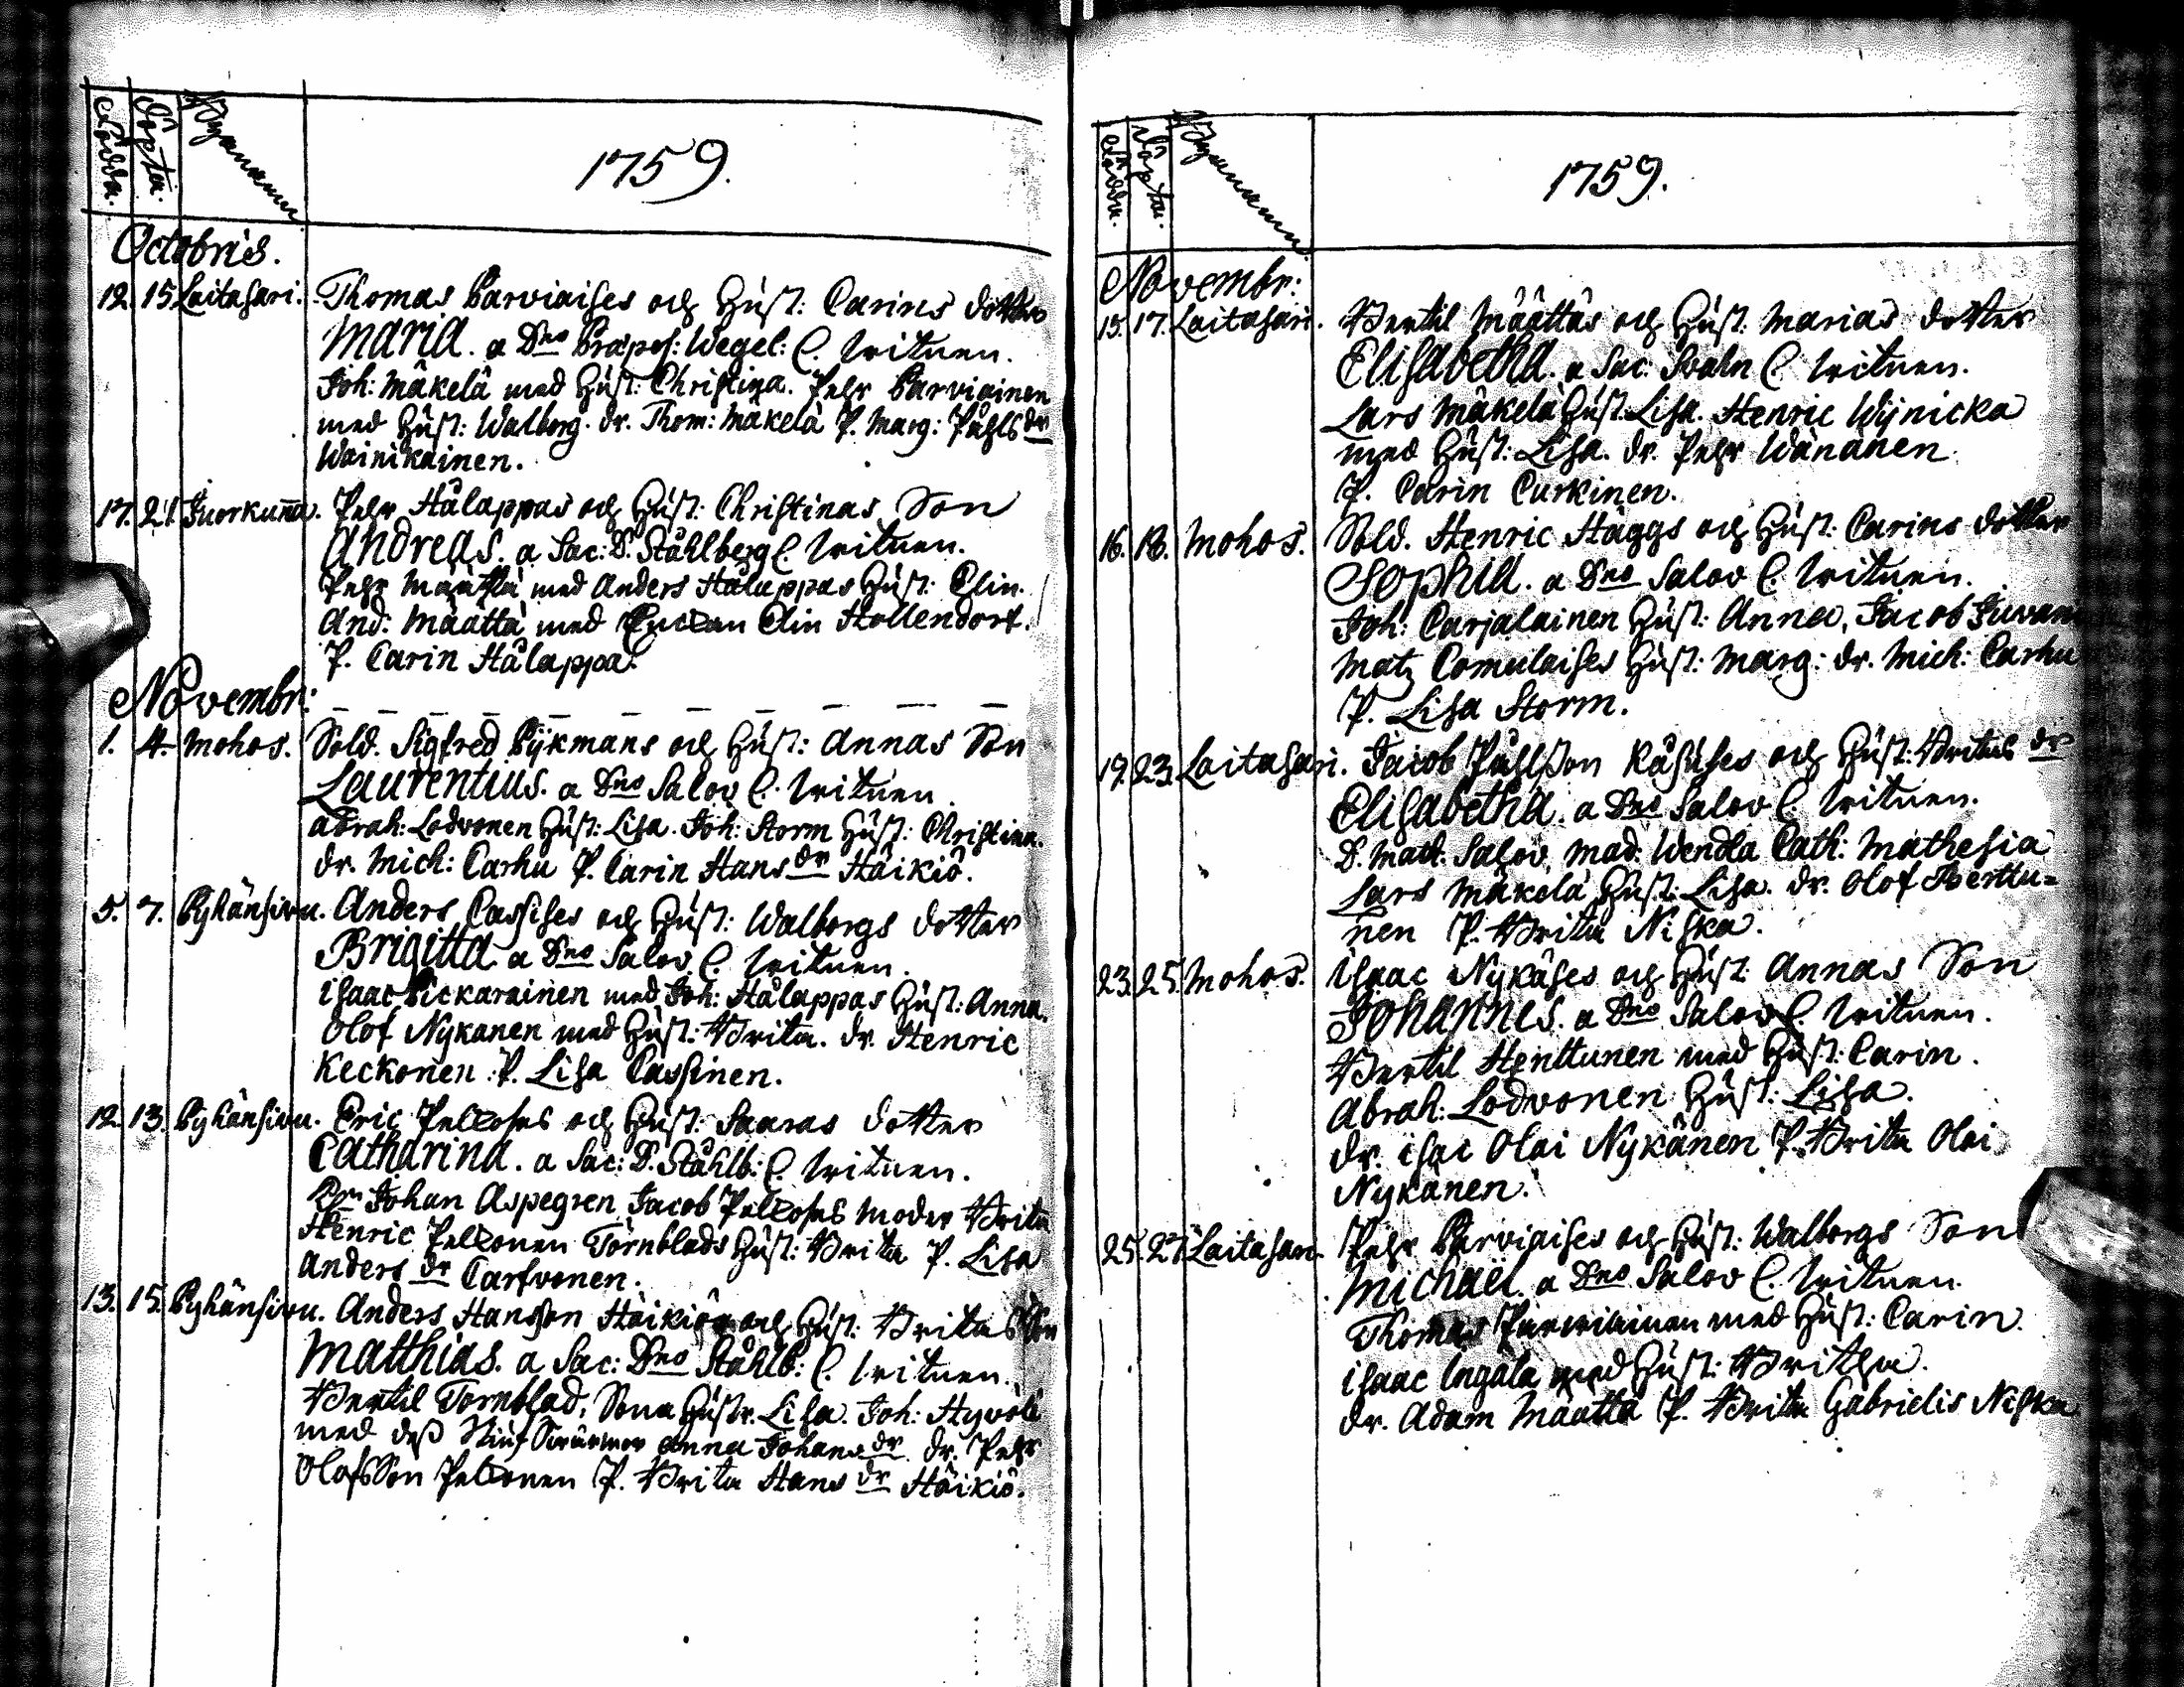 Födda. Döpta. Byanamn
1759.
Octobris.
12. 15 Laitasari. Thomas Parviaises och Hust: Carins dotter
Maria. a Dno Præpos: Wegel: C. Wituen.
Joh: Mäkelä med Hust: Christina. Pehr Parviainen
med Hust: Walborg. dr. Thom: Mäkelä P. Marg: Påhls dr
Wainikainen.
17. 21. Juorkuña. Pehr Hälappas och Hust: Christinas Son
Andreas. a Sac: D. Ståhlberg C. Wituen.
Pehr Määttä med Anders Hälappas Hust: Elin.
And: Määttä med Enckan Elin Hollendorf.
P. Carin Hälappa.
Novembr:
1. 4. Mohos. Sold. Sigfred Pÿkmans och Hust: Annas Son
Laurentius. a Dno Salov C. Wituen.
Abrah: Lodvonen Hust: Lisa. Joh: Storm Hust: Christina.
dr. Mich: Carhu P. Carin Hans dr Häikiö.
5. 7. Pyhänsivu. Anders Cassises och Hust: Walborgs dotter
Brigitta a Dno Salov C. Wituen.
Isaac Pickarainen med Joh: Hälappas Hust: Anna.
Olof Nykänen med Hust: Brita. dr. Henric
Keckonen. P. Lisa Cassinen.
12. 13. Pyhänsivu. Eric Pelloses och Hust: Saaras dotter
Catharina. a Sac: D. Ståhlb: C. Wituen.
Dn Johan Aspegren Jacob Pelloses Moder Brita
Henric Pelkonen Törnblads Hust: Brita P. Lisa
Anders dr Carfvonen.
13. 15. Pyhänsivu. Anders Hansson Häikiös och Hust: Britas Son
Matthias. a Sac: Dno Ståhlb: C. Wituen.
Bertil Törnblad, Sona Hustr. Lisa. Joh: Hyvölä
med dess Anna Johans dr dr. Pehr
Olofsson Pelkonen P. Brita Hans dr Häikiö.
Födda. Döpta. Byanamn
1759.
Novembr:
15. 17. Laitasari. Bertil Määttäs och Hust. Marias dotter
Elisabetha. a Sac: Svahn C. Wituen.
Lars Mäkelä Hust. Lisa. Henric Wijnicka
med Hust: Lisa. dr. Pehr Wänänen
P. Carin Curkinen.
16. 18. Mohos. Sold. Henric Häggs och Hust: Carins dotter
Sophia. a Dno Salov C. Wituen.
Joh: Carjalainen Hust: Anna, Jacob Juvan
Matz Comulaises Hust: Marg: dr. Mich: Carhu
P. Lisa Storm.
19. 23. Laitasari. Jacob Påhlsson Räsises och Hust: Britas dr
Elisabetha. a Dno Salov C. Wituen.
D. Math. Salov Mad. Wendla Cath: Mathesia
Lars Mäkelä Hust: Lisa. dr. Olof Perttu=
nen P. Brita Niska.
23. 25. Mohos. Isaac Nykäses och Hust: Annas Son
Johannes. a Dno Salov C. Wituen.
Bertil Henttunen med Hust: Carin.
Abrah: Lodvonen Hust: Lisa.
dr. Isac Olai Nykänen P. Brita Olai
Nykänen.
25. 27. Laitasari. Pehr Parviaises och Hust: Walborgs Son
Michaël. a Dno Salov C. Wituen.
Thomas Parviainen med Hust: Carin.
Isaac Ingala med Hust: Britha.
dr. Adam Määttä P. Brita Gabrielis Niska